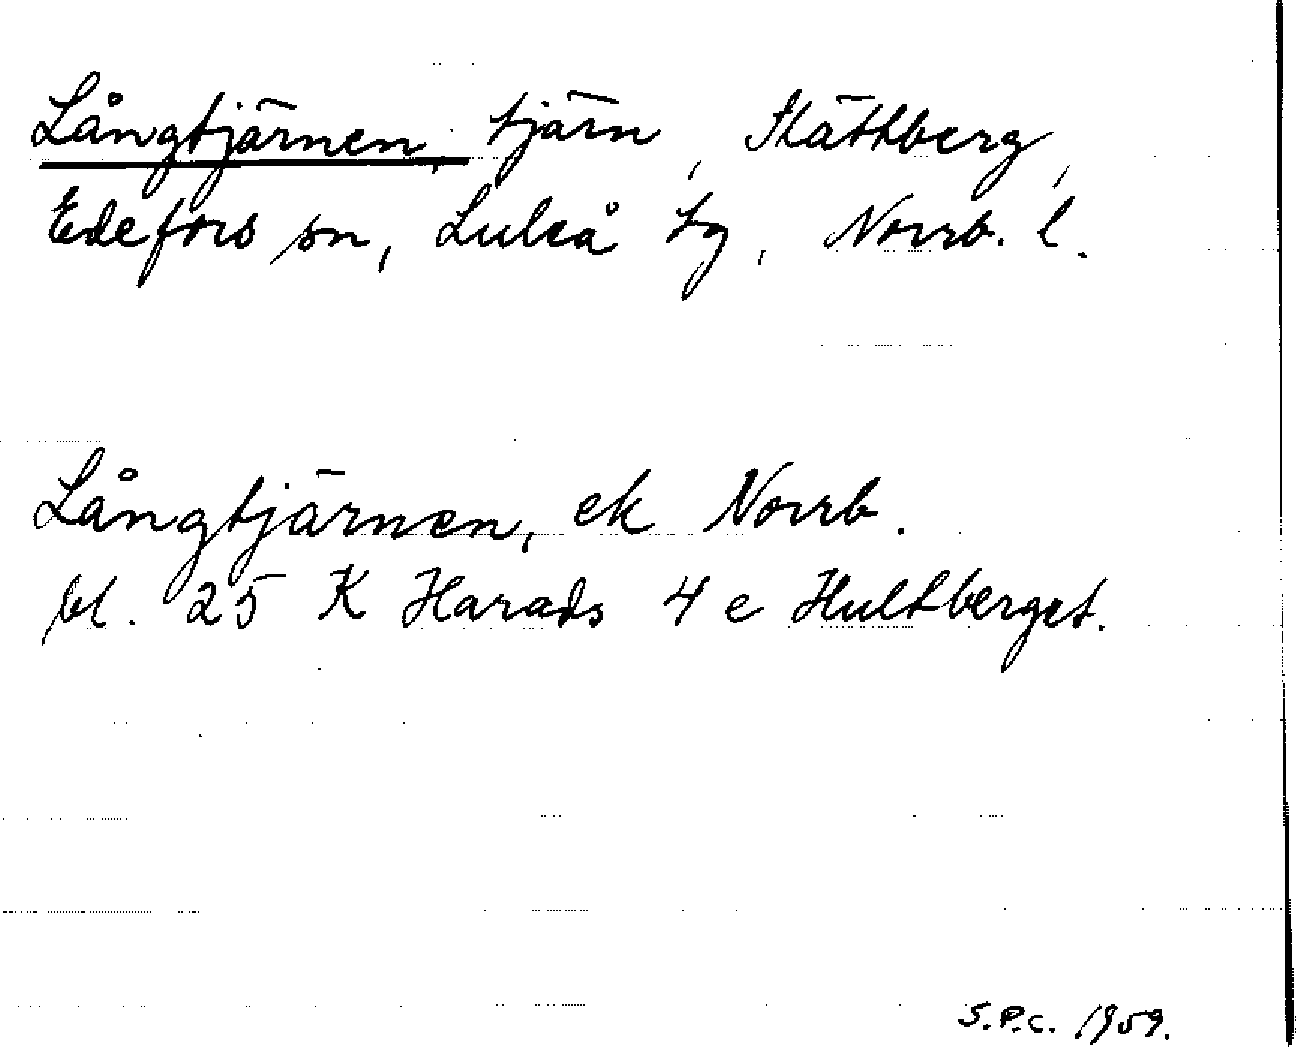 Långtjärnen, tjärn, Slättberg,
Edefors sn, Luleå tg, Norrb. l.
Långtjärnen, ek Norrb.
bl. 25 K Harads 4 e Hultberget.
S.P.C. 1959.